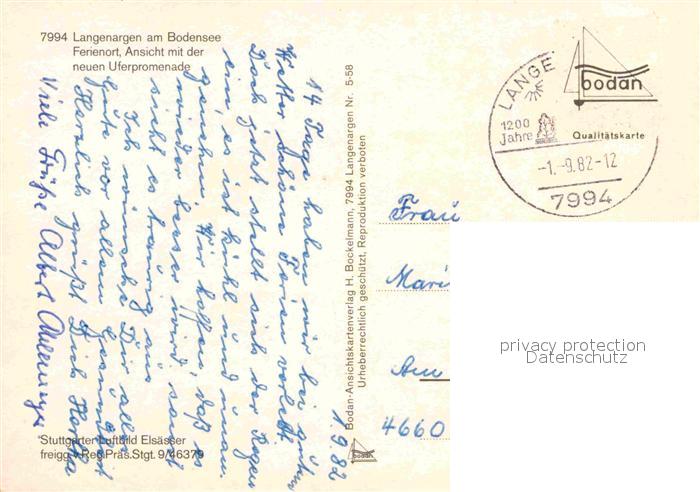 7994 Langenargen am Bodensee
Ferienort, Ansicht mit der
neuen Uferpromenade
1.9.82
14 Tage haben wir bei gutem
Wetter schöne Ferien verlebt.
Doch jetzt stellt sich der Regen
ein, es ist kühl und
geworden. Wir hoffen, daß es
wieder besser wird, sonst
sieht es traurig aus.
Ich wünsche Dir alles
Gute vor allem Gesundheit
Herzlich grüßt Dich
Viele Grüße Albert
Stuttgarter Luftbild Elsässer
freigg.v.Reg.Präs.Stgt. 9/46379
Bodan-Ansichtskartenverlag H. Bockelmann, 7994 Langenargen Nr. 5-58
Urheberrechtlich geschützt, Reproduktion verboten
bodan
Qualitätskarte
LANGE
1200
Jahre
-1.-9.82-12
7994
Frau
Mari
Am
4660
privacy protection
Datenschutz